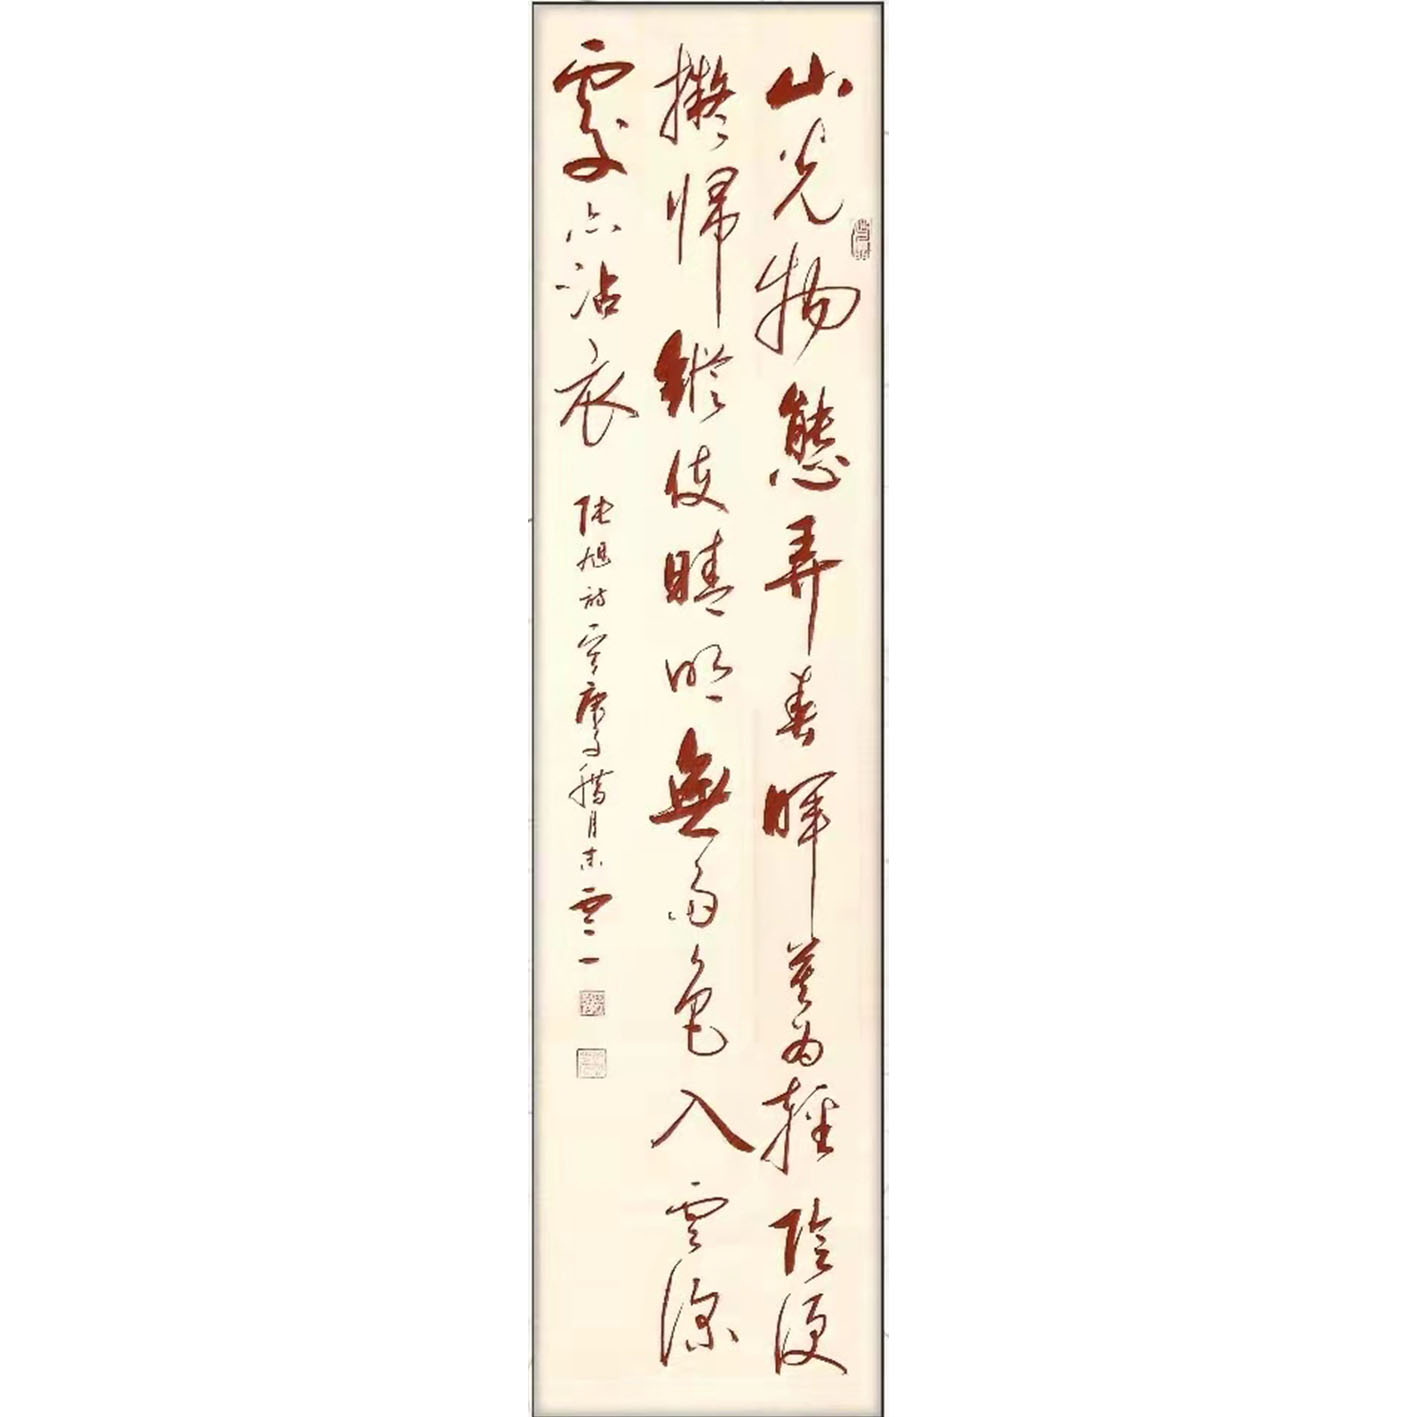 山光物態弄春暉莫為輕陰便
擬歸縱使晴明無雨色入雲深
處亦沾衣 張旭詩 庚子臘月末雲一